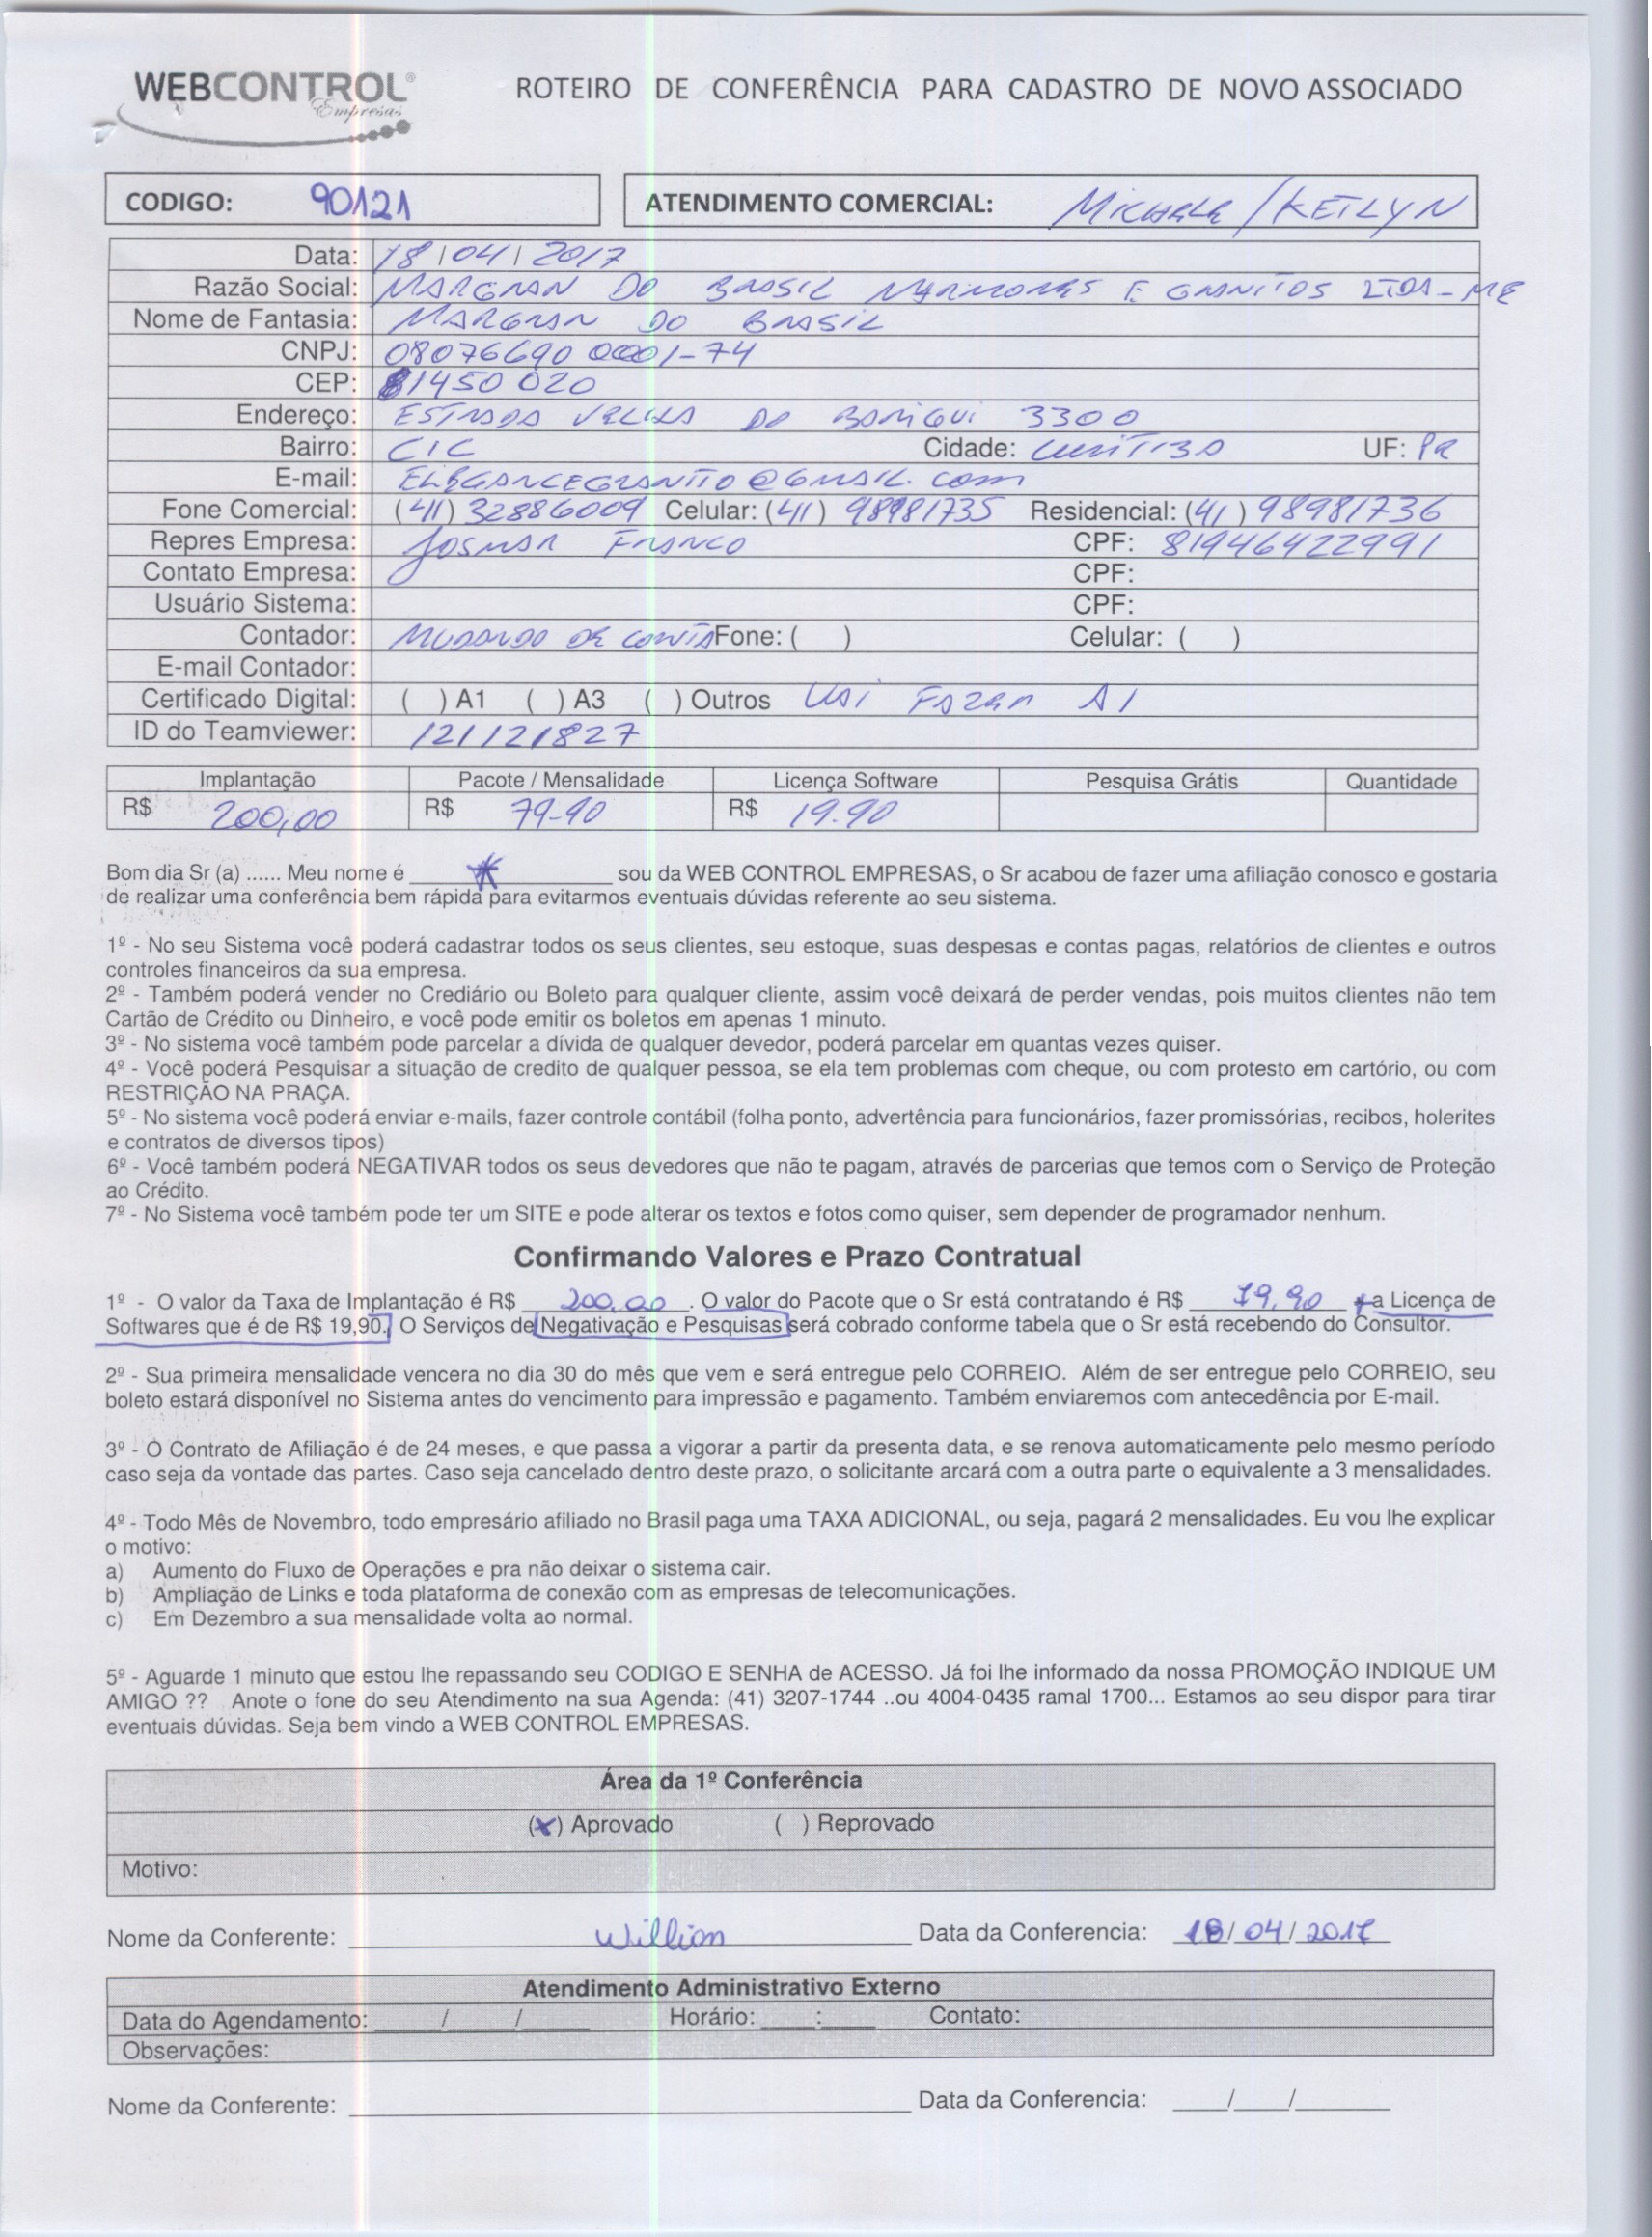 WEBCONTROL®
Empresas
ROTEIRO DE CONFERÊNCIA PARA CADASTRO DE NOVO ASSOCIADO
CODIGO: 90121
ATENDIMENTO COMERCIAL: MICHELE / KETLYN
Data: 18/04/2017
Razão Social: MARGRAN DO BRASIL MARMORES E GRANITOS LTDA-ME
Nome de Fantasia: MARGRAN DO BRASIL
CNPJ: 08076690 0001-74
CEP: 81450 020
Endereço: ESTRADA VELHA DO BARIGUI 3300
Bairro: CIC Cidade: CURITIBA UF: PR
E-mail: ELEGANCEGRANITO@GMAIL.COM
Fone Comercial: (41) 32886009 Celular: (41) 98981735 Residencial: (41) 98981736
Repres Empresa: JOSMAR FRANCO CPF: 81946422991
Contato Empresa: CPF:
Usuário Sistema: CPF:
Contador: MUDANDO DE CONTA Fone: ( ) Celular: ( )
E-mail Contador:
Certificado Digital: ( ) A1 ( ) A3 ( ) Outros VAI FAZER A1
ID do Teamviewer: 121121827
Implantação Pacote / Mensalidade Licença Software Pesquisa Grátis Quantidade
R$ 200,00 R$ 79-90 R$ 19.90
Bom dia Sr (a) ...... Meu nome é ____*____ sou da WEB CONTROL EMPRESAS, o Sr acabou de fazer uma afiliação conosco e gostaria
de realizar uma conferência bem rápida para evitarmos eventuais dúvidas referente ao seu sistema.
1º - No seu Sistema você poderá cadastrar todos os seus clientes, seu estoque, suas despesas e contas pagas, relatórios de clientes e outros
controles financeiros da sua empresa.
2º - Também poderá vender no Crediário ou Boleto para qualquer cliente, assim você deixará de perder vendas, pois muitos clientes não tem
Cartão de Crédito ou Dinheiro, e você pode emitir os boletos em apenas 1 minuto.
3º - No sistema você também pode parcelar a dívida de qualquer devedor, poderá parcelar em quantas vezes quiser.
4º - Você poderá Pesquisar a situação de credito de qualquer pessoa, se ela tem problemas com cheque, ou com protesto em cartório, ou com
RESTRIÇÃO NA PRAÇA.
5º - No sistema você poderá enviar e-mails, fazer controle contábil (folha ponto, advertência para funcionários, fazer promissórias, recibos, holerites
e contratos de diversos tipos)
6º - Você também poderá NEGATIVAR todos os seus devedores que não te pagam, através de parcerias que temos com o Serviço de Proteção
ao Crédito.
7º - No Sistema você também pode ter um SITE e pode alterar os textos e fotos como quiser, sem depender de programador nenhum.
Confirmando Valores e Prazo Contratual
1º - O valor da Taxa de Implantação é R$ 200,00. O valor do Pacote que o Sr está contratando é R$ 79,90 + a Licença de
Softwares que é de R$ 19,90. O Serviços de Negativação e Pesquisas será cobrado conforme tabela que o Sr está recebendo do Consultor.
2º - Sua primeira mensalidade vencera no dia 30 do mês que vem e será entregue pelo CORREIO. Além de ser entregue pelo CORREIO, seu
boleto estará disponível no Sistema antes do vencimento para impressão e pagamento. Também enviaremos com antecedência por E-mail.
3º - O Contrato de Afiliação é de 24 meses, e que passa a vigorar a partir da presenta data, e se renova automaticamente pelo mesmo período
caso seja da vontade das partes. Caso seja cancelado dentro deste prazo, o solicitante arcará com a outra parte o equivalente a 3 mensalidades.
4º - Todo Mês de Novembro, todo empresário afiliado no Brasil paga uma TAXA ADICIONAL, ou seja, pagará 2 mensalidades. Eu vou lhe explicar
o motivo:
a) Aumento do Fluxo de Operações e pra não deixar o sistema cair.
b) Ampliação de Links e toda plataforma de conexão com as empresas de telecomunicações.
c) Em Dezembro a sua mensalidade volta ao normal.
5º - Aguarde 1 minuto que estou lhe repassando seu CODIGO E SENHA de ACESSO. Já foi lhe informado da nossa PROMOÇÃO INDIQUE UM
AMIGO ?? Anote o fone do seu Atendimento na sua Agenda: (41) 3207-1744 ..ou 4004-0435 ramal 1700... Estamos ao seu dispor para tirar
eventuais dúvidas. Seja bem vindo a WEB CONTROL EMPRESAS.
Área da 1º Conferência
(x) Aprovado ( ) Reprovado
Motivo:
Nome da Conferente: Willian Data da Conferencia: 18/04/2017
Atendimento Administrativo Externo
Data do Agendamento: ____/____/____ Horário: ____:____ Contato:
Observações:
Nome da Conferente: ____ Data da Conferencia: ____/____/____